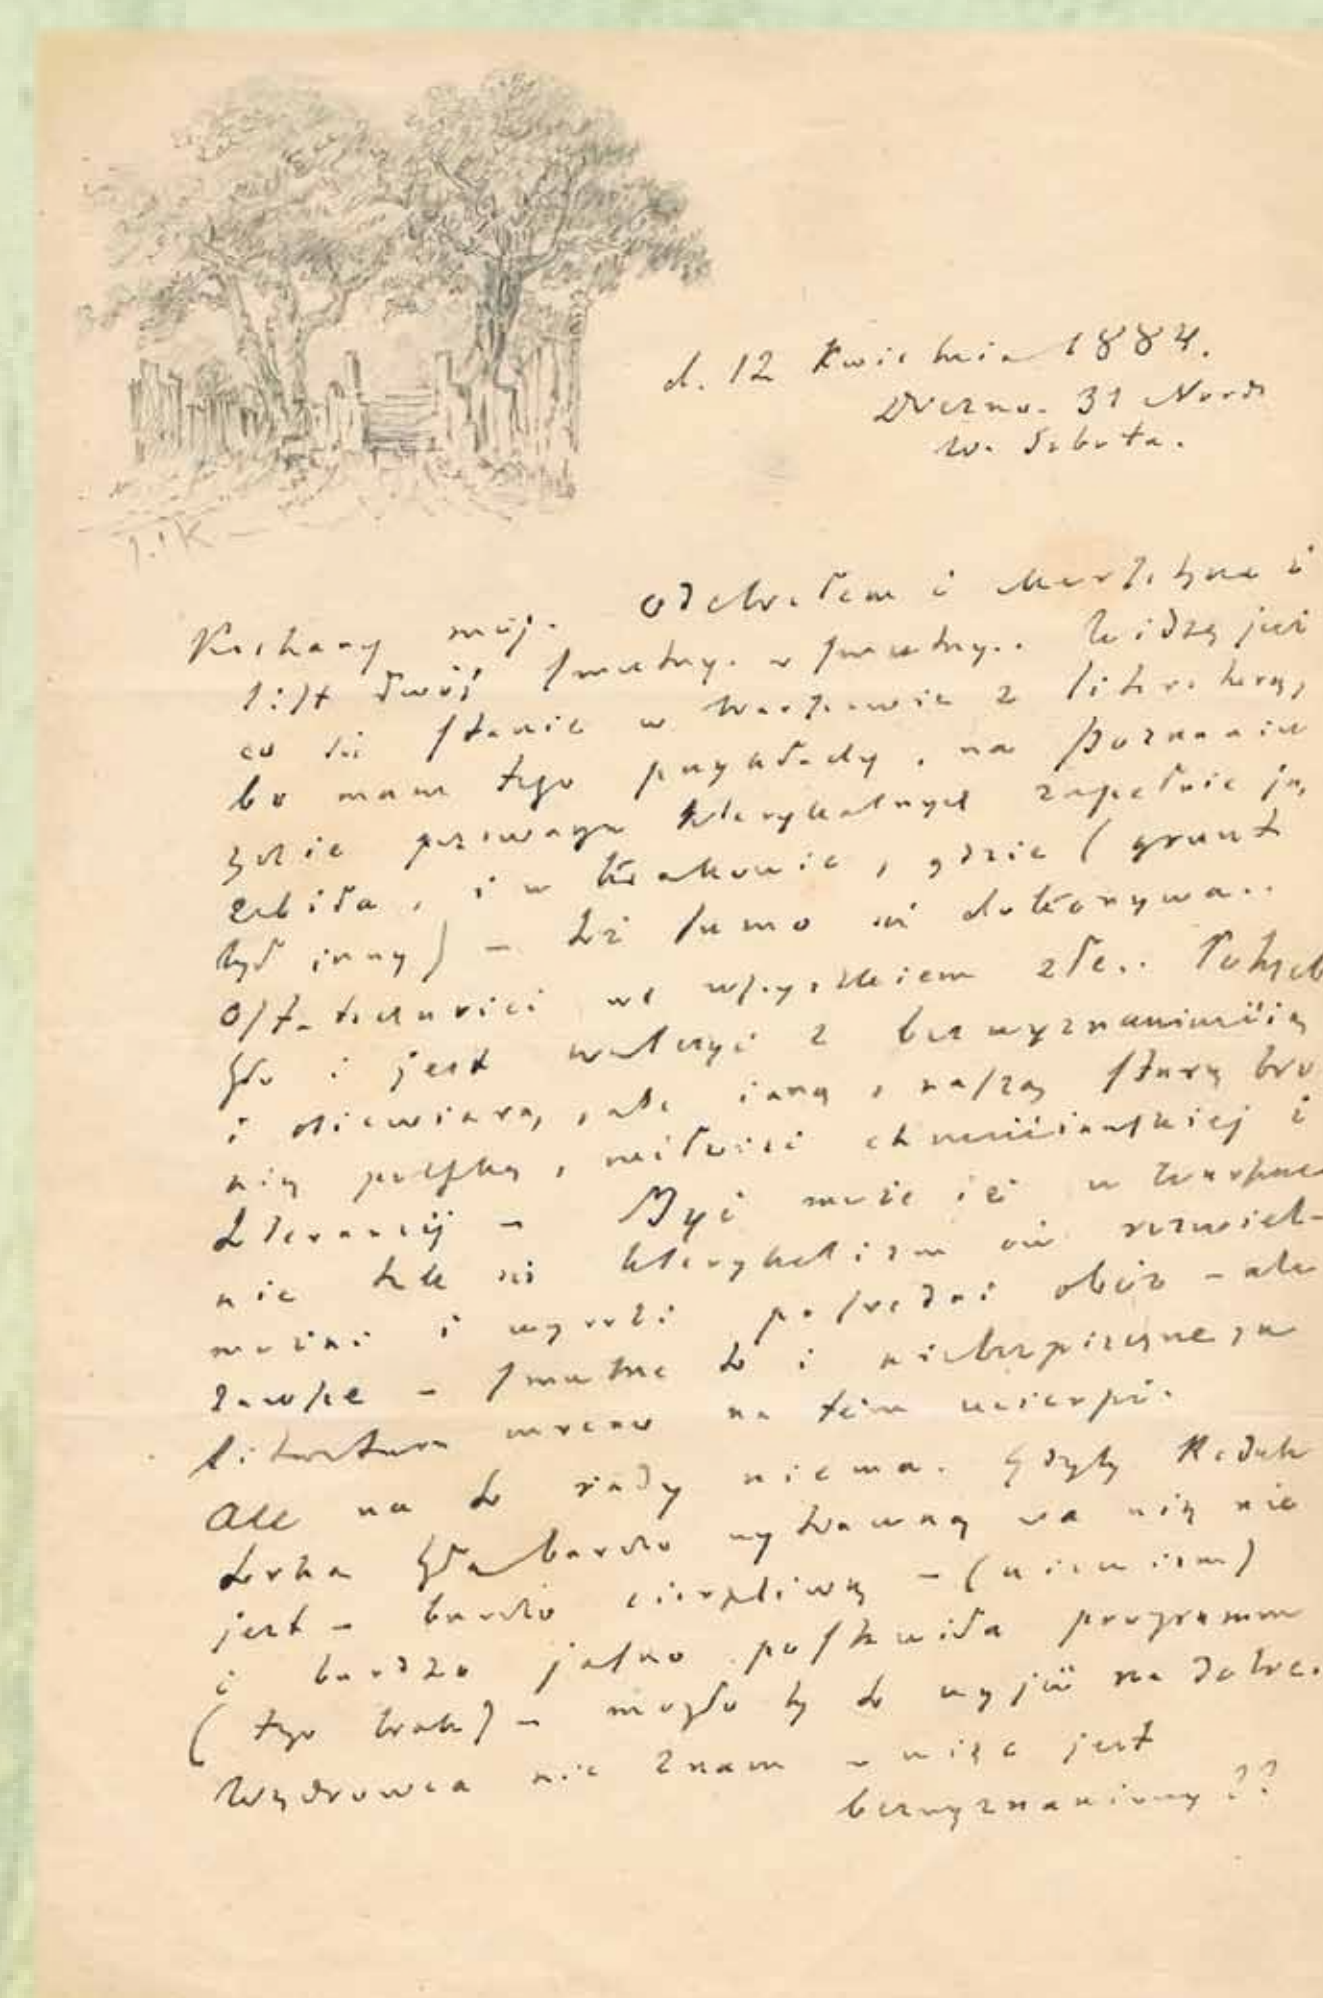 d. 12 Kwietnia 1884.
Drezno. 31 Nord
w. Sobota.
J.I.K
Kochany mój. Odebrałem i i
list twój smutny. o smutny.. Widzę już
co się stanie w Warszawie z literaturą,
bo mam tego przykłady, na Poznaniu
gdzie przewaga klerykalnych zupełnie ją,
zabiła, i w Krakowie, gdzie (grunt
był inny) – toż samo się dokonywa..
Ostateczności we wszystkiem złe.. Potrzeb
było i jest walczyć z bezwyznaniowością
i niewiarą, ale inną, naszą starą bro
nią polską, miłości chrześcijańskiej i
tolerancij – Być może iż w Warszawie
nie tak się klerykalizm ów rozwiel-
możni i wyrodzi pośredni obóz – ale
zawsze – smutne to i niebezpieczne
literatura mocno na tem ucierpi.
Ale na to rady niema. Gdyby Redak
torka była bardzo wytrawną na nią nie
jest – bardzo cierpliwą – (nie wiem)
i bardzo jasno postawiła programm
(tego brak) – mogło by to wyjść na dobre.
Wędrowca nie znam – więc jest
bezwyznaniowy??